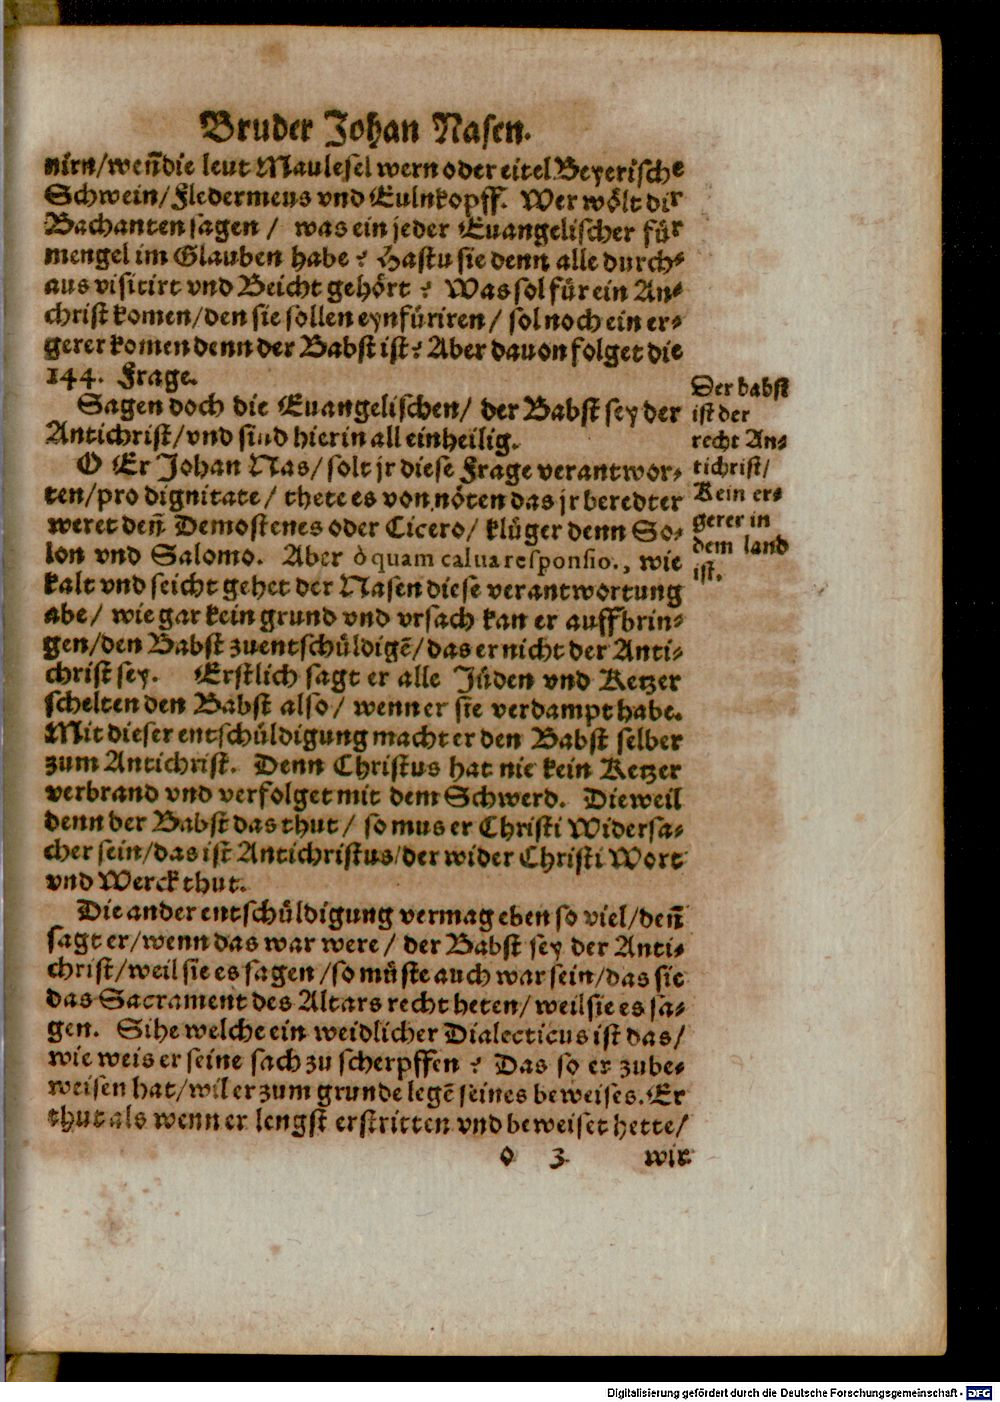 Bruder Johan Nasen.
nirn/weñ die leut Maulesel wern oder eitel Beyerische
Schwein/Fledermeus vnd Eulnkopff. Wer wölt dir
Bachanten sagen / was ein jeder Euangelischer für
mengel im Glauben habe? Hastu sie denn alle durch-
aus visitirt vnd Beicht gehört? Was sol für ein An-
christ komen/den sie sollen eynfüriren/ sol noch ein er-
gerer komen denn der Babst ist? Aber dauon folget die
144. Frage.
Sagen doch die Euangelischen/ der Babst sey der
Antichrist/vnd sind hierin all einheilig.
O Er Johan Nas/ solt jr diese Frage verantwor-
ten/pro dignitate/ thete es von nöten das jr beredter
weret deñ Demostenes oder Cicero/ klüger denn So-
lon vnd Salomo. Aber ò quam calua responsio., wie
kalt vnd seicht gehet der Nasen diese verantwortung
abe/ wie gar kein grund vnd vrsach kan er auffbrin-
gen/den Babst zuentschüldigē/das er nicht der Anti-
christ sey. Erstlich sagt er alle Jüden vnd Ketzer
schelten den Babst also/ wenn er sie verdampt habe.
Mit dieser entschüldigung macht er den Babst selber
zum Antichrist. Denn Christus hat nie kein Ketzer
verbrand vnd verfolget mit dem Schwerd. Dieweil
denn der Babst das thut/ so mus er Christi Widersa-
cher sein/das ist Antichristus/der wider Christi Wort
vnd Werck thut.
Die ander entschüldigung vermag eben so viel/deñ
sagt er/wenn das war were/ der Babst sey der Anti-
christ/weil sie es sagen/so müste auch war sein/das sie
das Sacrament des Altars recht heten/ weil sie es sa-
gen. Sihe welche ein weidlicher Dialecticus ist das/
wie weis er seine sach zu scherpffen? Das so er zube-
weisen hat/wil er zum grunde legē seines beweises. Er
thut als wenn er lengst erstritten vnd beweiset hette/
O 3. wir
Der babst
ist der
recht An-
tichrist/
Kein er-
gerer in
dem land
ist.
Digitalisierung gefördert durch die Deutsche Forschungsgemeinschaft - DFG